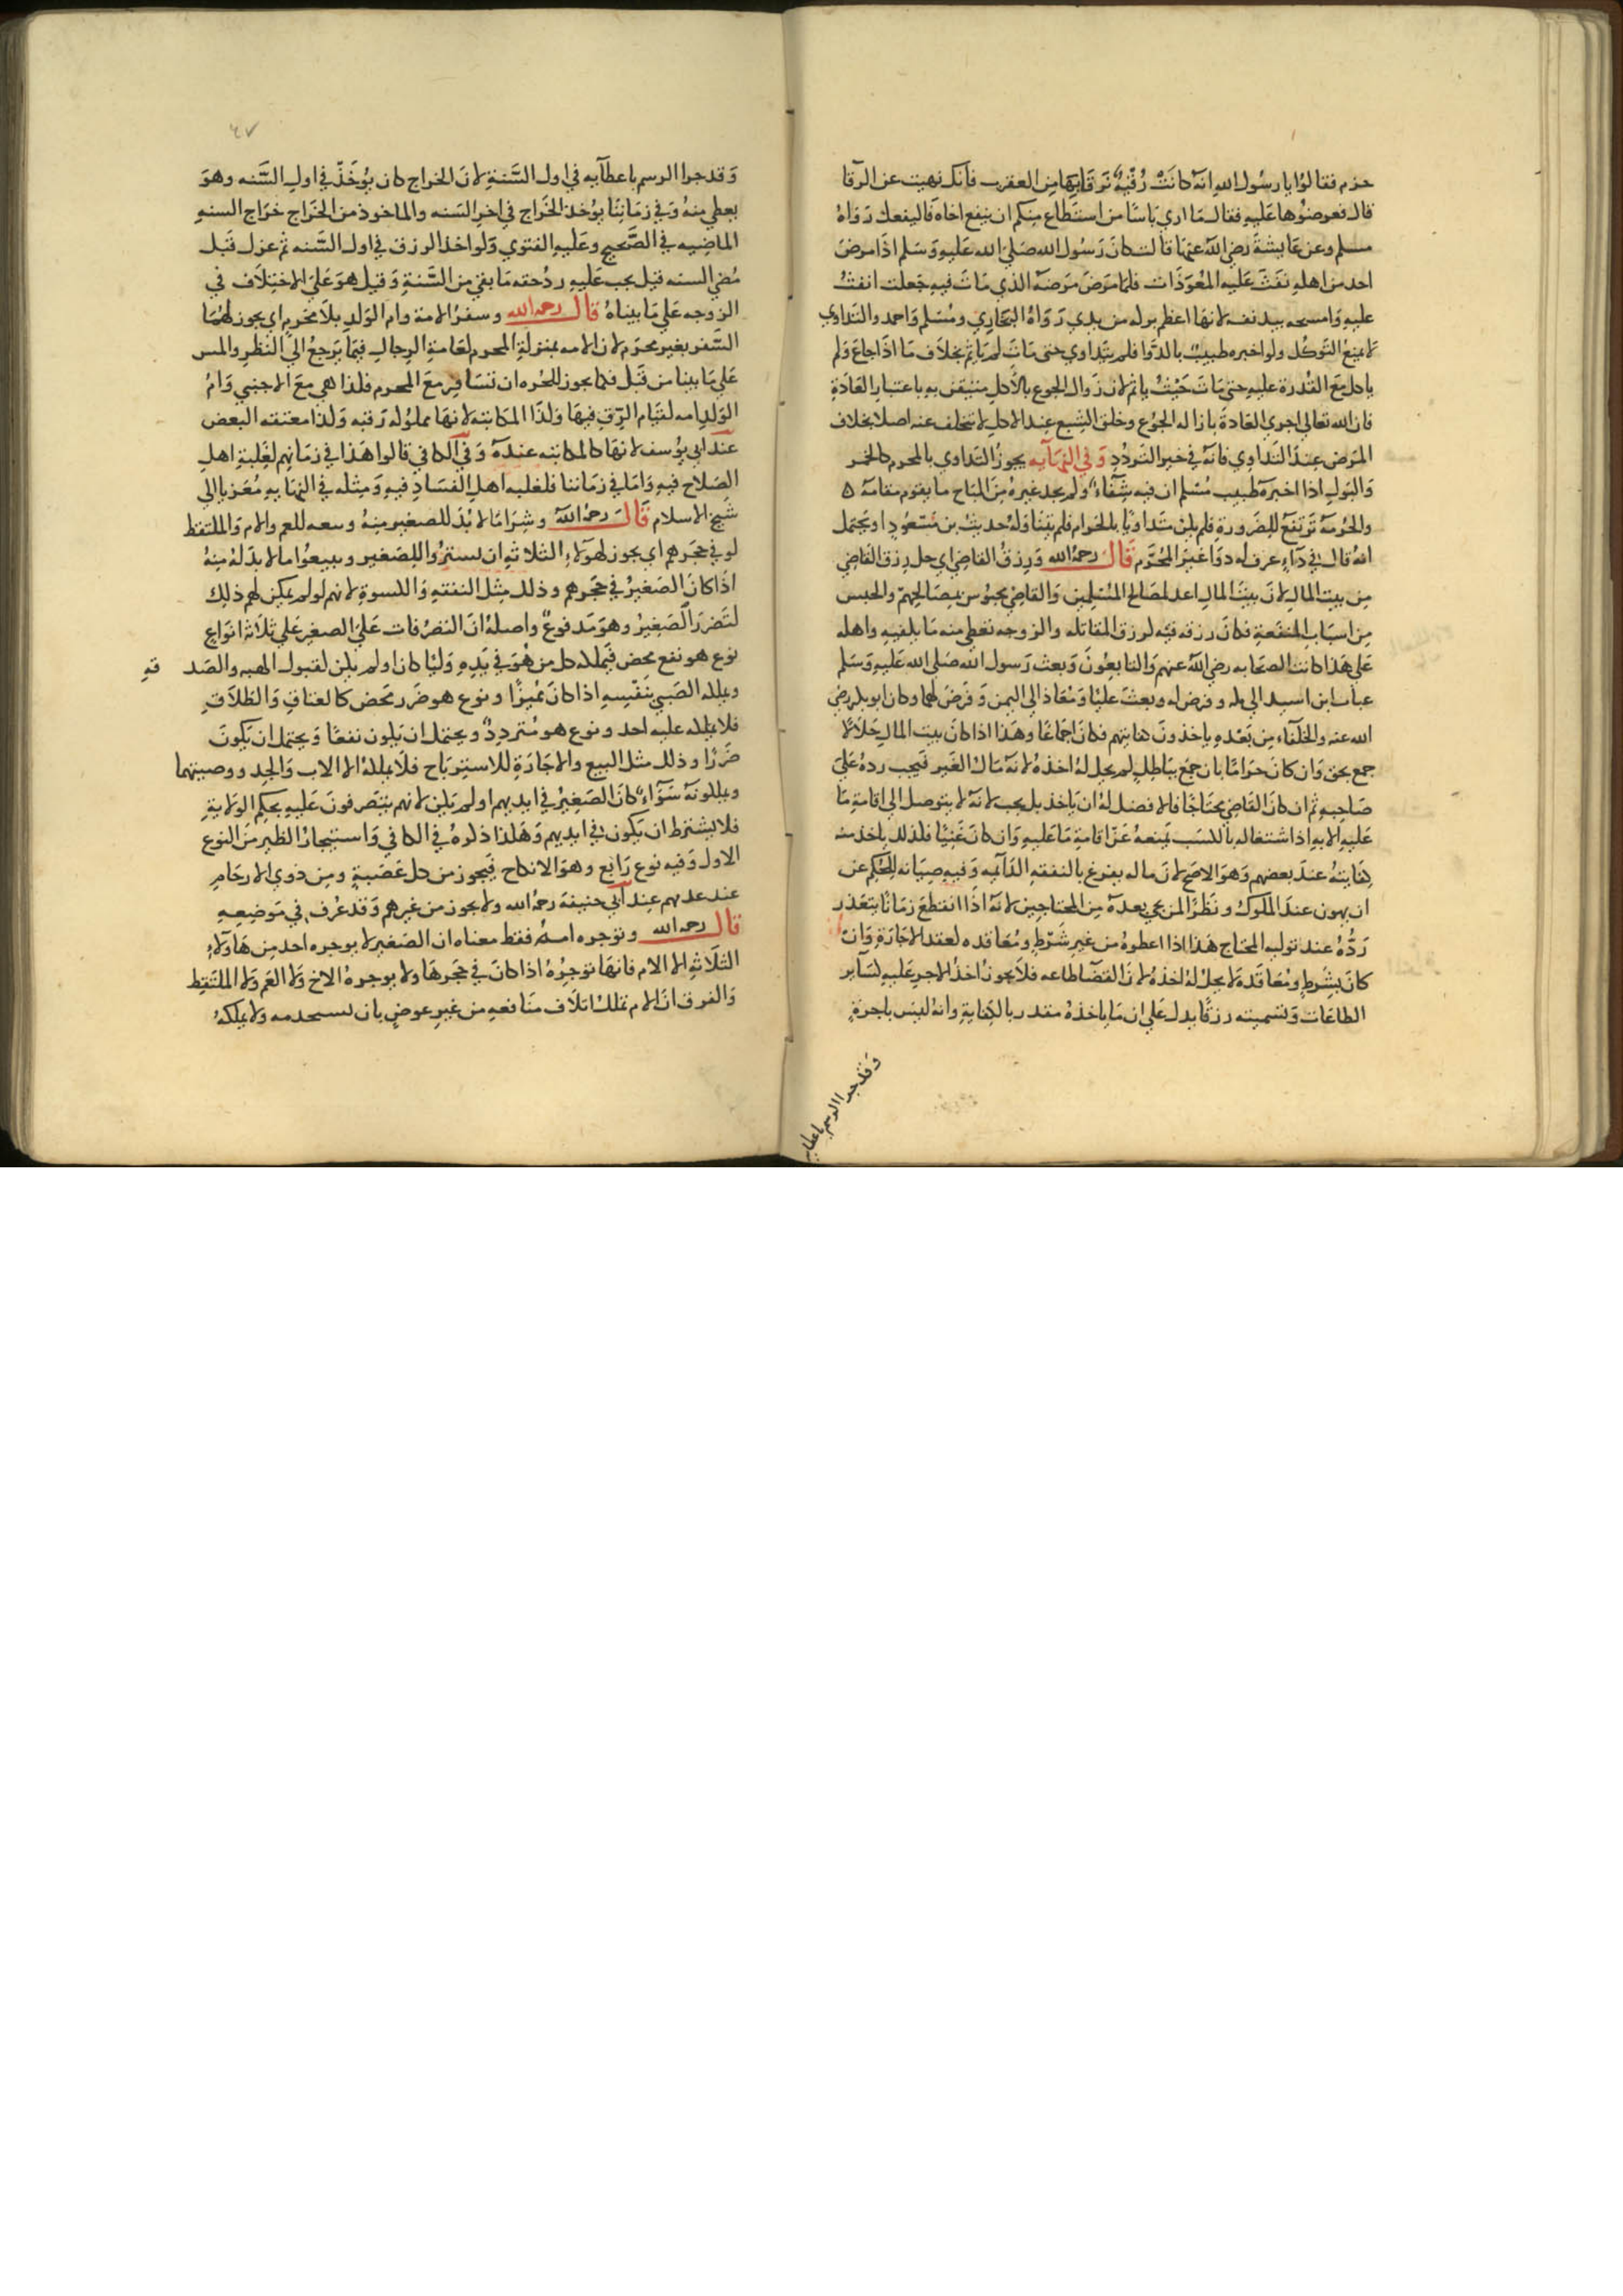 حزم فقالوا يا رسول الله انه كانت رقية نرقا بها من العقرب فانك نهيت عن الرقا
قال فعرضوها عليه فقال ما اري باسا من استطاع منكم ان ينفع اخاه فاليفعل رواه
مسلم وعن عايشة رضي الله عنها قالت كان رسول الله صلى الله عليه وسلم اذا مرض
احد من اهله نفث عليه المعوذات فلما مرض مرضه الذي مات فيه جعلت انفث
عليه وامسحه بيد نفسه لانها اعظم بركه من يدي رواه البخاري ومسلم واحمد والتداوي
لا يمنع التوكل ولو اخبره طبيب بالدوا فلم يتداوي حتى مات لم ياثم بخلاف ما اذا جاع ولم
ياكل مع القدرة عليه حتى مات حيث ياثم لان زوال الجوع بالاكل متيقن به باعتبار العادة
فان الله تعالي اجري العادة بازاله الجوع وخلق الشبع عند الاكل لا يتخلف عنه اصلا بخلاف
المرض عند التداوي فانه في خير التردد وفي النهايه يجوز التداوي بالمحرم كالخمر
والبول اذا اخبره طبيب مسلم ان فيه شفاء ولم يجد غيره من المباح ما يقوم مقامه ه
والحرمة ترتفع للضرورة فلم يكن متداويا بالحرام فلم يتناوله حديث بن مسعود او يحتمل
انه قال في داء عرف له دوا غير المحرم قال رحمه الله ورزق القاضي اي حل رزق القاضي
من بيت المال لان بيت المال اعد لمصالح المسلمين والقاضي محبوس بمصالحهم والحبس
من اسباب النفقة فكان رزقه فيه لرزق المقاتله والزوجه نعطي منه ما يكفيه واهله
على هذا كانت الصحابه رضي الله عنهم والتابعون وبعث رسول الله صلى الله عليه وسلم
عتاب ابن اسيد الي مكه وفرض له وبعث عليا ومعاذ الي اليمن وفرض لهما وكان ابو بكر رضي
الله عنه والخلفاء من بعده ياخذون كفايتهم فكان اجماعا وهذا اذا كان بيت المال حلالا
جمع بحق وان كان حراما بان جمع بباطل لم يحل له اخذه لانه مال الغير فيجب رده على
صاحبه ثم ان كان القاضي محتاجا فالافضل له ان ياخذ بل يجب لانه لا يتوصل الي اقامة ما
عليه الا به اذ اشتغاله بالكسب يمنعه عن اقامة ما عليه وان كان غنيا فلذلك ياخذ منه
كفايته عند بعضهم وهو الاصح لان ماله يفرغ بالنفقه الدائمه وفيه صيانه للحكم عن
ان يهون عند الملوك ونظرا لمن يجي بعده من المحتاجين لانه اذا انقطع زمانا يتعذر
رده عند توليه المحتاج هذا اذا اعطوه من غير شرط ومعاقده لعقد الاجارة وان
كان بشرط ومعاقدة لا يحل له اخذه لان القضا طاعه فلا يجوز اخذ الاجر عليه لسائر
الطاعات وتسميته رزقا يدل على ان ما ياخذه مقدر بالكفاية وانه ليس باجرة
وقد جرا الرسم باعطايه
٤٧
وقد جرا الرسم باعطائه في اول السنة لان الخراج كان يؤخذ في اول السنه وهو
يعطي منه وفي زماننا يوخذ الخراج في اخر السنه والماخوذ من الخراج خراج السنه
الماضيه في الصحيح وعليه الفتوي ولو اخذ الرزق في اول السنه ثم عزل قبل
مضي السنه قيل يجب عليه رد حقه ما بقي من السنة وقيل هو على الاختلاف في
الزوجه على ما بيناه قال رحمه الله وسفر الامة وام الولد بلا محرم اي يجوز لهما
السفر بغير محرم لان الامه بمنزلة المحرم لعامة الرجال فيما يرجع الى النظر والمس
على ما بينا من قبل فكما يجوز للحره ان تسافر مع المحرم فلذا هي مع الاجنبي وام
الولد امه لقيام الرق فيها ولذا المكاتبه لانها مملوكه رقبه ولذا معتقه البعض
عند ابي يوسف لانها كالمكاتبه عنده وفي الكافي قالوا هذا في زمانهم لغلبة اهل
الصلاح فيه واما في زماننا فلغلبه اهل الفساد فيه ومثله في النهايه معزيا الي
شيخ الاسلام قال رحمه الله وشرا ما لا بد للصغير منه وبيعه للعم والام والملتقط
لو في حجرهم اي يجوز لهولاء الثلاثه ان يستروا للصغير ويبيعوا ما لا بد له منه
اذا كان الصغير في حجرهم وذلك مثل النفقه والكسوة لانهم لو لم يمكن لهم ذلك
لتضرر الصغير وهو مدفوع واصله ان التصرفات على الصغير على ثلاثه انواع
نوع هو نفع محض فيملكه كل من هو في يده وليا كان او لم يكن لقبول الهبه والصدقه
ويملكه الصبي بنفسه اذا كان مميزا ونوع هو ضرر محض كالعتاق والطلاق
فلا يملكه عليه احد ونوع هو متردد ويحتمل ان يكون نفعا ويحتمل ان يكون
ضررا وذلك مثل البيع والاجارة للاسترباح فلا يملكه الا الاب والجد ووصيهما
ويملكونه سواء كان الصغير في ايديهم او لم يكن لانهم يتصرفون عليه بحكم الولاية
فلا يشترط ان يكون في ايديهم وهكذا ذكره في الكافي واستيجار الظير من النوع
الاول وفيه نوع رابع وهو الانكاح فيجوز من كل عصبة ومن ذوي الارحام
عند عدمهم عند ابي حنيفة رحمه الله ولا يجوز من غيرهم وقد عرف في موضعه
قال رحمه الله وتوجره امه فقط معناه ان الصغير لا يوجره احد من هاولاء
الثلاثه الا الام فانها توجره اذا كان في حجرها ولا يوجره الاخ ولا العم ولا الملتقط
والفرق ان الام تملك اتلاف منافعه من غير عوض بان تستخدمه ولا يملكه